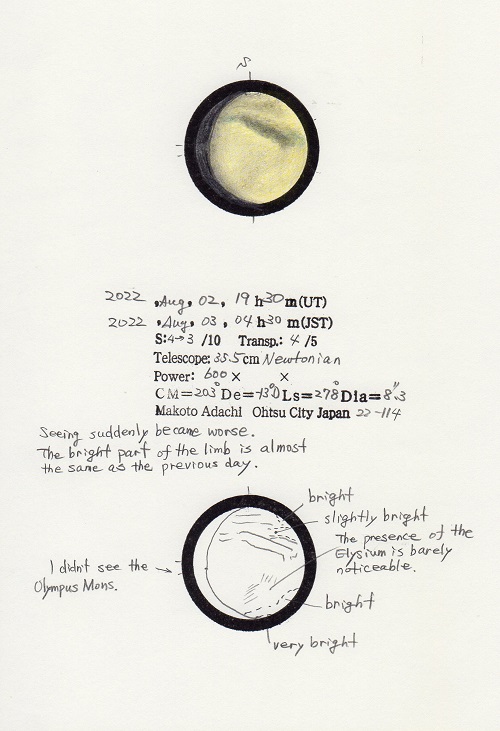 S
2022 , Aug, 02, 19 h 30 m (UT)
2022 , Aug, 03, 04 h 30 m (JST)
S: 4→3 /10 Transp.: 4 /5
Telescope: 35.5 cm Newtonian
Power: 600 × ×
CM=203° De=-13°.0 Ls=278° Dia=8".3
Makoto Adachi Ohtsu City Japan 22-114
Seeing suddenly became worse.
The bright part of the limb is almost
the same as the previous day.
bright
slightly bright
The presence of the
Elysium is barely
noticeable.
I didn't see the
Olympus Mons.
bright
very bright